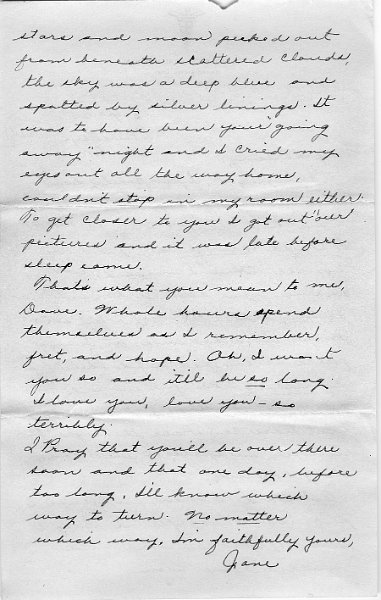 stars and moon peeked out
from beneath scattered clouds,
the sky was a deep blue and
spotted by silver linings. It
was to have been your "going
away" night and I cried my
eyes out all the way home,
couldn't stop in my room either.
To get closer to you I got out our
pictures and it was late before
sleep came.
That's what you mean to me,
Dave. Whole hours spend
themselves as I remember,
fret, and hope. Oh, I want
you so and it'll be so long.
I love you, love you - so
terribly.
I Pray that you'll be over there
soon and that one day, before
too long, I'll know which
way to turn. No matter
which way, I'm faithfully yours,
Jane